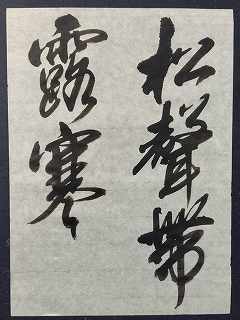 松聲帶
露寒